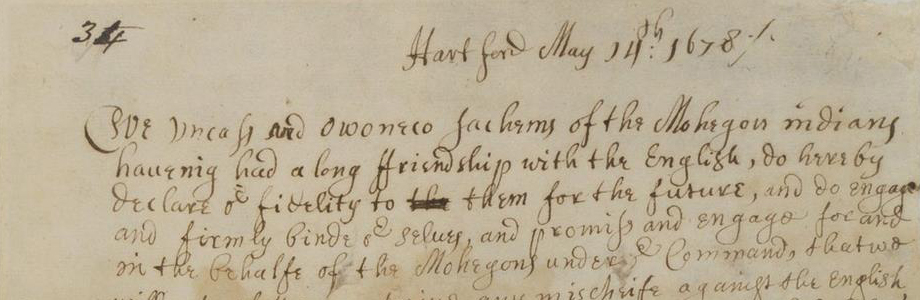 34
Hartford May 14th: 1678/.
We Vncass and Owoneco Sachems of the Mohegon indians
haveing had a long ffriendship with the English, do hereby
declare or fidelity to the them for the future, and do engage
and firmly binde or selves, and promiss and engage for and
in the behalfe of the Mohegons under or Command, that we
any mischeife against the English